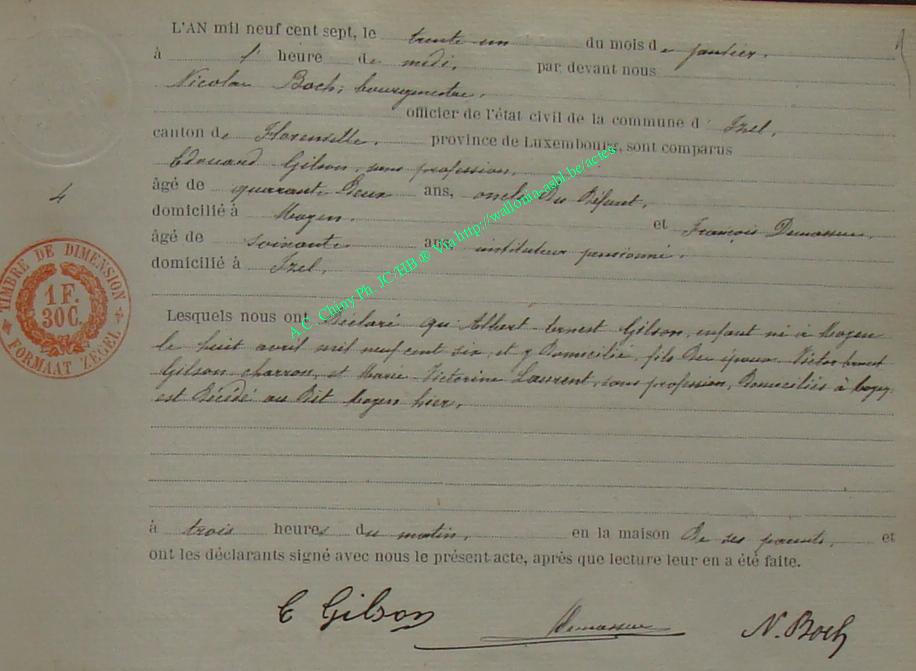 L'AN mil neuf cent sept, le trente un du mois de janvier.
à l' heure de midi, par devant nous
Nicolas Boch, bourgmestre,
officier de l'état civil de la commune d' Izel,
canton de Florenville, province de Luxembourg, sont comparus
Edouard Gilson, sans profession,
âgé de quarante deux ans, oncle du défunt,
domicilié à Moyen, et François Demasure
âgé de soixante ans, instituteur pensionné,
domicilié à Izel,
Lesquels nous ont Déclaré qu' Albert Ernest Gilson, enfant né à Moyen
le huit avril mil neuf cent six, et y Domicilié, fils des époux Victor Ernest
Gilson charron, et Marie Victorine Laurent, sans profession, Domiciliés à Moyen
est Décédé au Dit Moyen hier,
à trois heures du matin, en la maison De ses parents, et
ont les déclarants signé avec nous le présent acte, après que lecture leur en a été faite.
E Gilson
N. Boch
4
TIMBRE DE DIMENSION
1 F.
30 C.
FORMAAT ZEGEL
A.C. Chiny Ph. JC/HB ® Via http://wallonia-asbl.be/actes